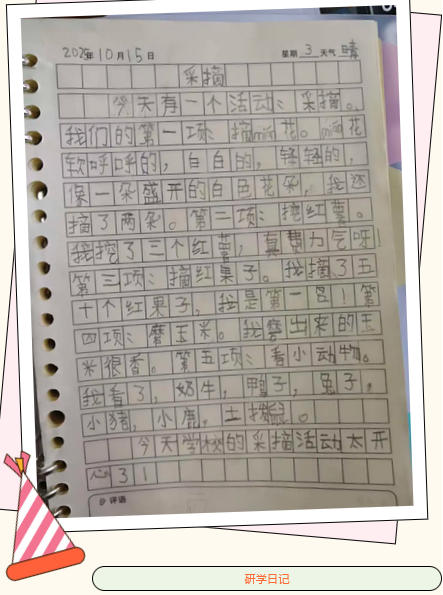 2025年10月15日 星期3天气晴
采摘
今天有一个活动:采摘。
我们的第一项:摘mián花。mián花
软呼呼的,白白的,轻轻的,
像一朵盛开的白色花朵,我还
摘了两朵。第二项:挖红薯。
我挖了三个红薯,真费力气呀!
第三项:摘红果子。我摘了五
十个红果子,我是第一名!第
四项:磨玉米。我磨出来的玉
米很香。第五项:看小动物。
我看了,奶牛,鸭子,兔子,
小猪,小鹿,土拨鼠。
今天学校的采摘活动太开
心了!
评语
研学日记